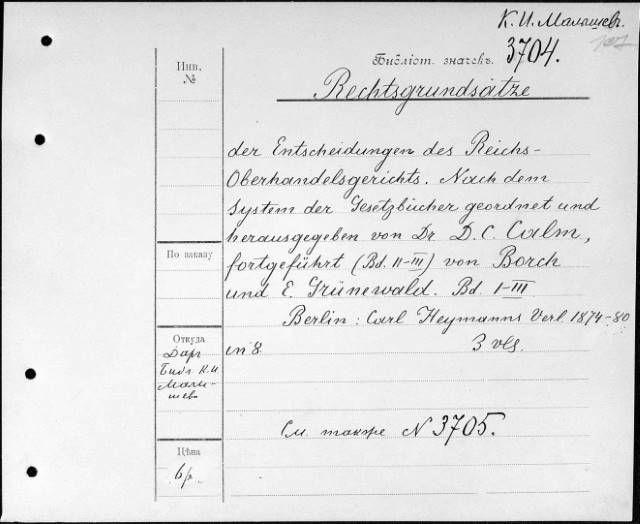 К. И. Малышевъ.
Библіот. значекъ. 3704.
Инв. №
Rechtsgrundsätze
der Entscheidungen des Reichs-
Oberhandelsgerichts. Nach dem
System der Gesetzbücher geordnet und
herausgegeben von Dr D. C. Calm,
fortgeführt (Bd. II-III) von Borch
und E. Grünewald. Bd. I-III
Berlin: Carl Heymanns Verl. 1874-80
in 8 3 vls.
См. также N 3705.
По заказу
Откуда
Даръ
Библ. К. И
Малы-
шева
Цѣна
6 р.